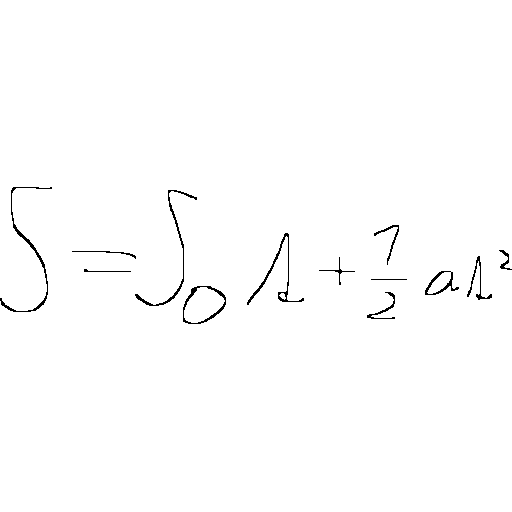 S = ∫₀ t + 1/2 at²